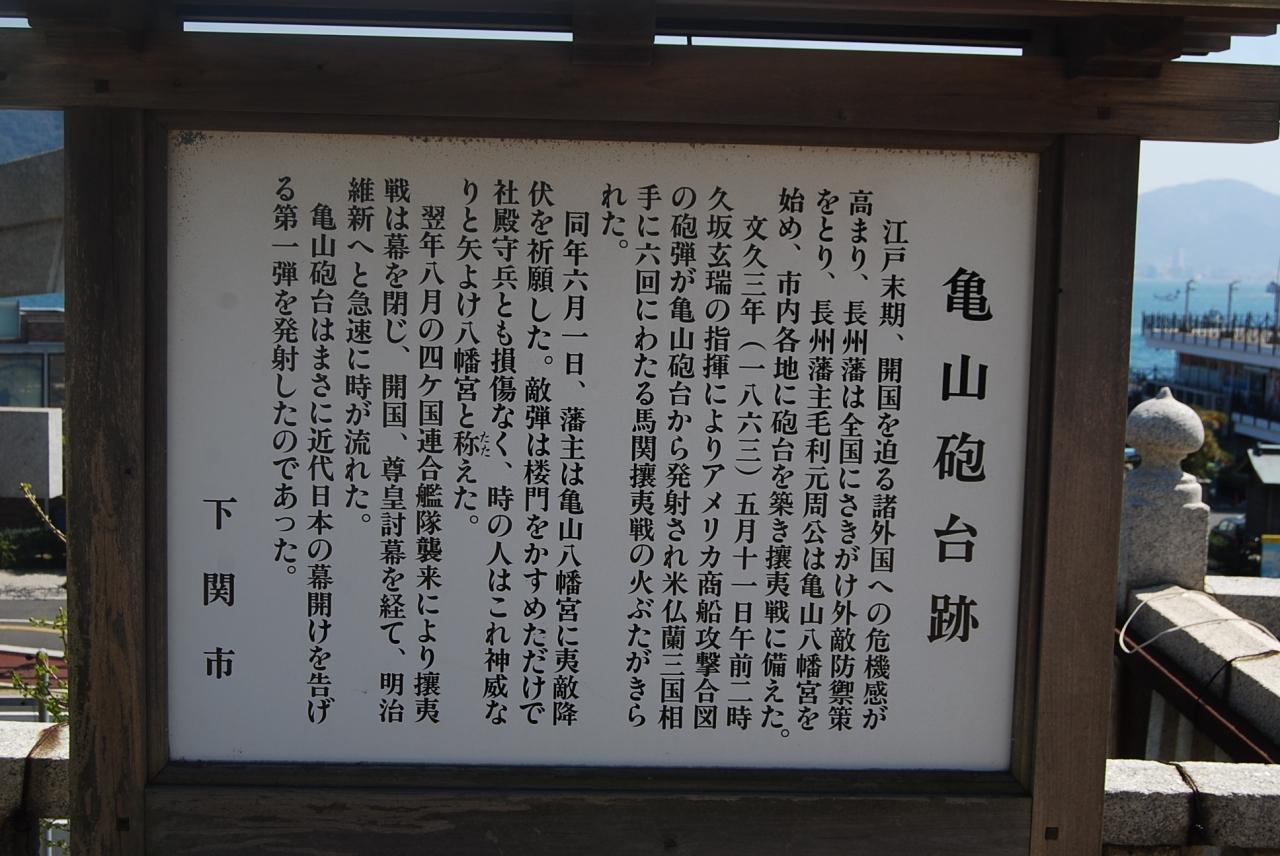 亀山砲台跡
江戸末期、開国を迫る諸外国への危機感が
高まり、長州藩は全国にさきがけ外敵防禦策
をとり、長州藩主毛利元周公は亀山八幡宮を
始め、市内各地に砲台を築き攘夷戦に備えた。
文久三年（一八六三）五月十一日午前二時
久坂玄瑞の指揮によりアメリカ商船攻撃合図
の砲弾が亀山砲台から発射され米仏蘭三国相
手に六回にわたる馬関攘夷戦の火ぶたがきら
れた。
同年六月一日、藩主は亀山八幡宮に夷敵降
伏を祈願した。敵弾は楼門をかすめただけで
社殿守兵とも損傷なく、時の人はこれ神威な
りと矢よけ八幡宮と称えた。
たた
翌年八月の四ケ国連合艦隊襲来により攘夷
戦は幕を閉じ、開国、尊皇討幕を経て、明治
維新へと急速に時が流れた。
亀山砲台はまさに近代日本の幕開けを告げ
る第一弾を発射したのであった。
下関市